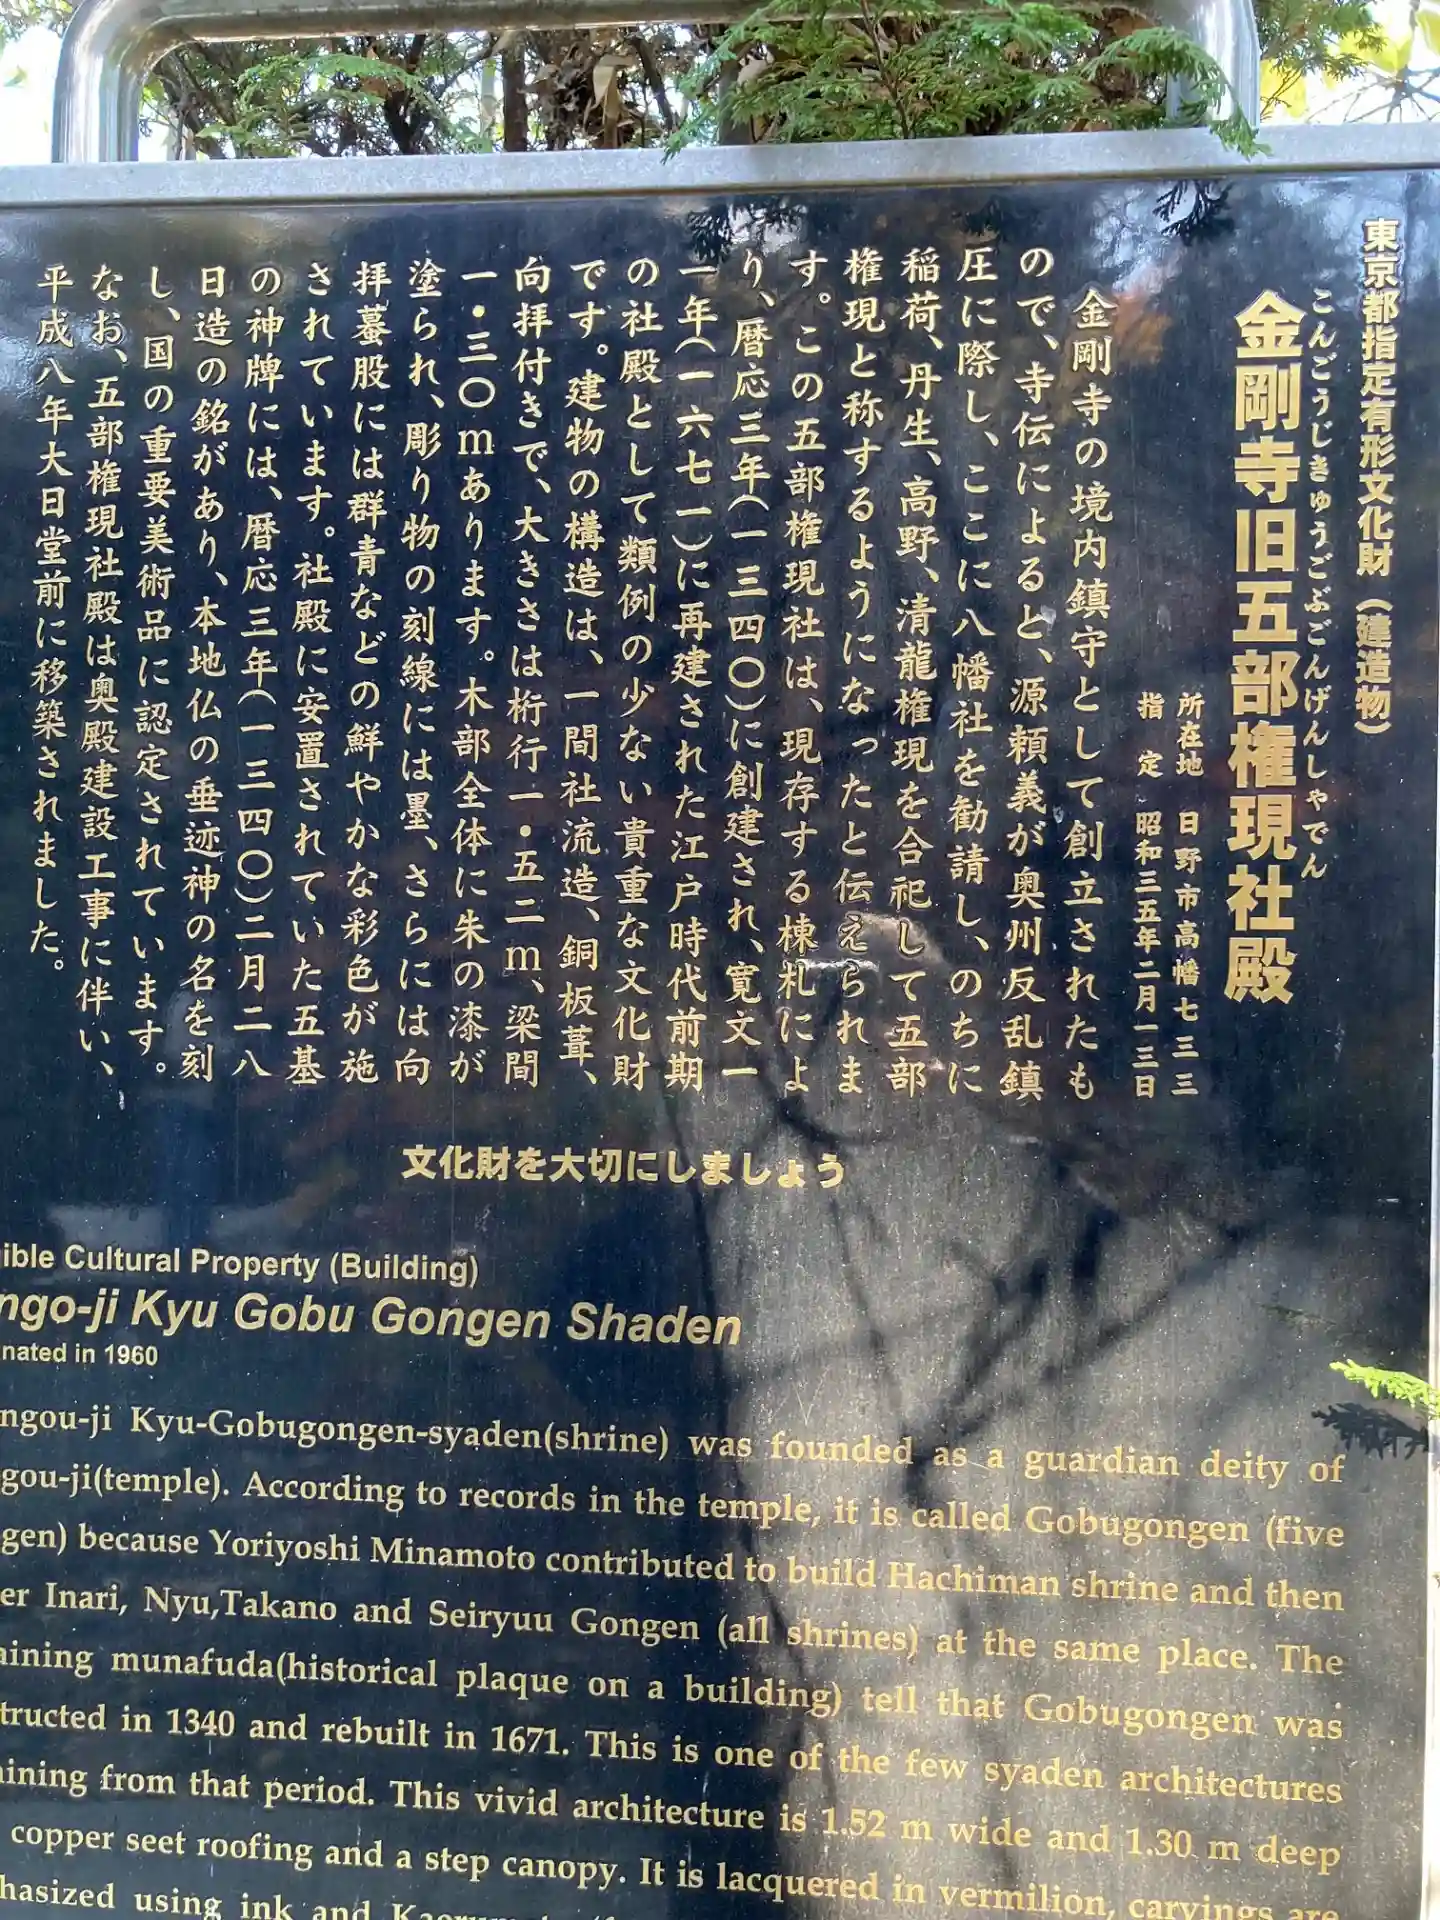 東京都指定有形文化財（建造物）
こんごうじきゅうごぶごんげんしゃでん
金剛寺旧五部権現社殿
所在地　日野市高幡七三三
指　定　昭和三五年二月一三日
金剛寺の境内鎮守として創立されたも
ので、寺伝によると、源頼義が奥州反乱鎮
圧に際し、ここに八幡社を勧請し、のちに
稲荷、丹生、高野、清龍権現を合祀して五部
権現と称するようになったと伝えられま
す。この五部権現社は、現存する棟札によ
り、暦応三年（一三四〇）に創建され、寛文一
一年（一六七一）に再建された江戸時代前期
の社殿として類例の少ない貴重な文化財
です。建物の構造は、一間社流造、銅板葺、
向拝付きで、大きさは桁行一・五二ｍ、梁間
一・三〇ｍあります。木部全体に朱の漆が
塗られ、彫り物の刻線には墨、さらには向
拝蟇股には群青などの鮮やかな彩色が施
されています。社殿に安置されていた五基
の神牌には、暦応三年（一三四〇）二月二八
日造の銘があり、本地仏の垂迹神の名を刻
し、国の重要美術品に認定されています。
なお、五部権現社殿は奥殿建設工事に伴い、
平成八年大日堂前に移築されました。
文化財を大切にしましょう
ible Cultural Property (Building)
ngo-ji Kyu Gobu Gongen Shaden
nated in 1960
ngou-ji Kyu-Gobugongen-syaden(shrine) was founded as a guardian deity of
gou-ji(temple). According to records in the temple, it is called Gobugongen (five
gen) because Yoriyoshi Minamoto contributed to build Hachiman shrine and then
er Inari, Nyu,Takano and Seiryuu Gongen (all shrines) at the same place. The
aining munafuda(historical plaque on a building) tell that Gobugongen was
tructed in 1340 and rebuilt in 1671. This is one of the few syaden architectures
ining from that period. This vivid architecture is 1.52 m wide and 1.30 m deep
copper seet roofing and a step canopy. It is lacquered in vermilion, carvings are
hasized using ink and